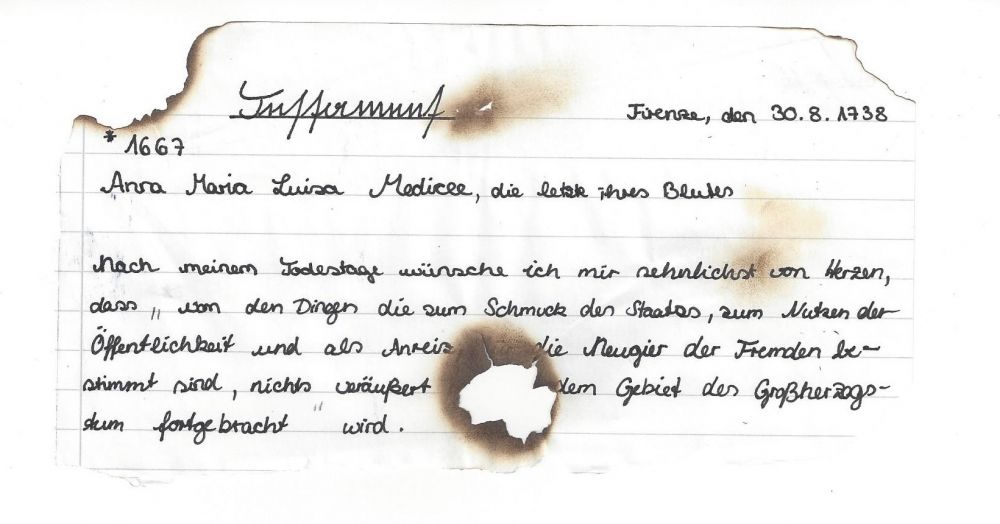 Testament
Firenze, den 30.8.1738
* 1667
Anna Maria Luisa Medicee, die letzte ihres Blutes
Nach meinem Todestage wünsche ich mir sehnlichst von Herzen,
dass „ von den Dingen die zum Schmuck des Staates, zum Nutzen der
Öffentlichkeit und als Anreiz die Neugier der Fremden be-
stimmt sind, nichts veräußert dem Gebiet des Großherzogs-
tum fortgebracht " wird.